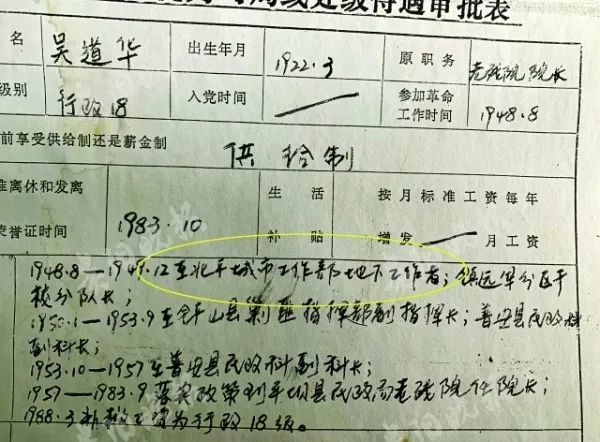 处级待遇审批表
名 吴道华 出生年月 1922.3 原职务 老残院院长
级别 行政18 入党时间 参加革命工作时间 1948.8
前享受供给制还是薪金制 供给制
准离休和发离 生活 按月标准工资每年
荣誉证时间 1983.10 补贴 增发 月工资
1948.8—1949.12至北平城市工作部地下工作者；镇远军分区干
校分队长；
1950.1—1953.9至 山县剿匪指挥部副指挥长；普安县民政科
副科长；
1953.10—1957至普安县民政科副科长；
1957—1983.9落实政策到平坝县民政局老残院任院长；
1988.3补 工资为行政18级。